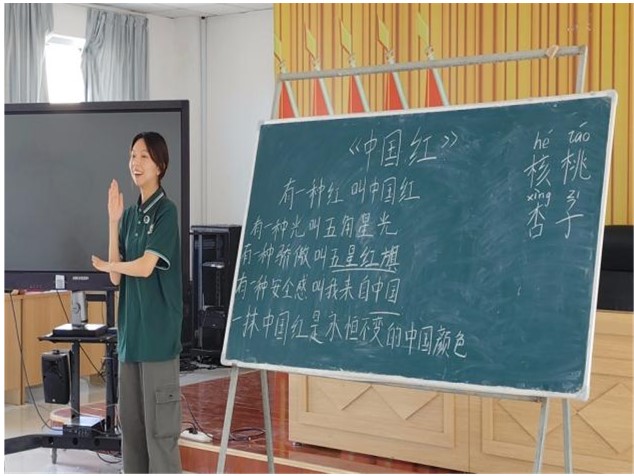 《中国红》
有一种红 叫中国红
有一种光叫五角星光
有一种骄傲叫五星红旗
有一种安全感叫我来自中国
一抹中国红是永恒不变的中国颜色
hé táo
核桃
xìng zi
杏子